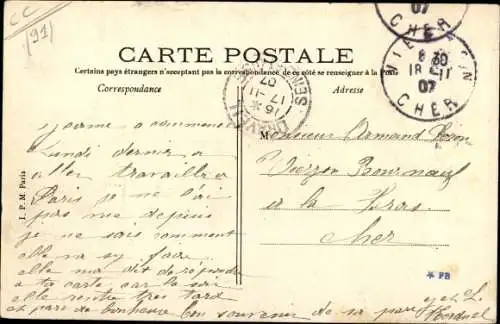 CC
(91)
CARTE POSTALE
Certains pays étrangers n'acceptant pas la correspondance de ce côté se renseigner à la Poste
Correspondance
Adresse
VIERZON
8 30
18 - 11
07
CHER
07
CHER
DRAVEIL
16
17 - 11
07
SEINE
a commencé
Lundi dernier a
aller travailler a
Paris je ne l'ai
pas vue depuis
je ne sais comment
elle va s'y faire
elle m'a dit de répondre
a ta carte car le soir
elle rentre tres tard
et pas de bonheur Bon souvenir de sa part
Monsieur Armand
Vierzon Bourgneuf
Cher
I. P. M. Paris
* PB